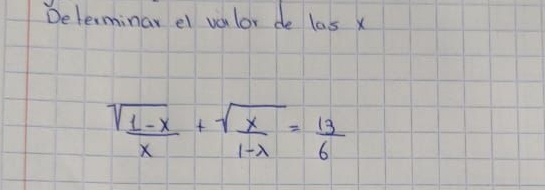 Determinar el valor de las x
√(1-x)/x + √(x/(1-x)) = 13/6